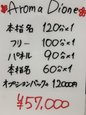 Aroma Dione
本指名 120分×1
フリー 100分×1
パネル 90分×1
本指名 60分×1
オプションバック 12000円
¥57,000